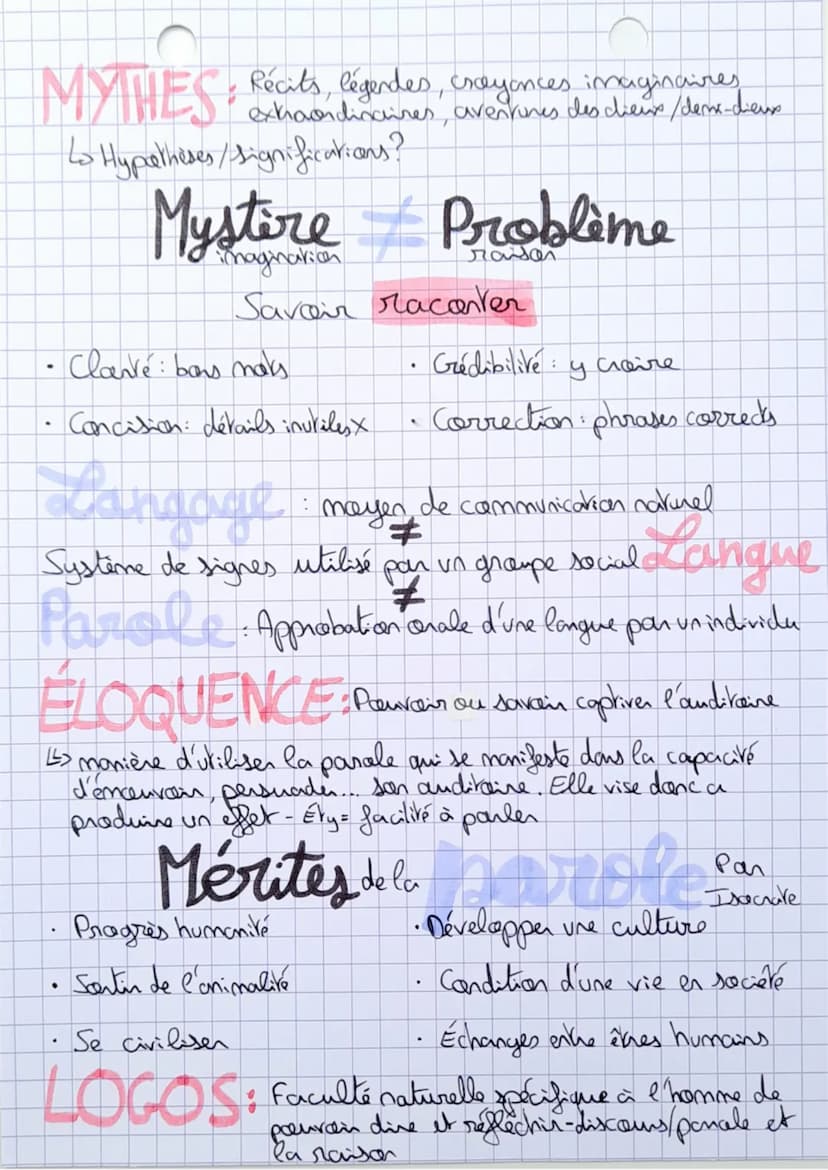 MYTHES: Récits, légendes, croyances imaginaires
extraordinaires, aventures des dieux/demi-dieux
↳ Hypothèses/significations?
Mystère ≠ Problème
imagination raison
Savoir raconter
• Clarté: bons mots • Crédibilité: y croire
• Concision: détails inutiles x • Correction: phrases correcte
Langage : moyen de communication naturel
≠
Système de signes utilisé par un groupe social Langue
≠
Parole : Approbation orale d'une langue par un individu
ÉLOQUENCE: Pouvoir ou savoir captiver l'auditoire
↳ manière d'utiliser la parole qui se manifeste dans la capacité
d'émouvoir, persuader... son auditoire. Elle vise donc a
produire un effet - Éty = facilité à parler
Mérites de la parole Par Isocrate
• Progrès humanité • Développer une culture
• Sortir de l'animalité • Condition d'une vie en société
• Se civiliser • Échanges entre êtres humains
LOGOS: Faculté naturelle spécifique à l'homme de
pouvoir dire et réfléchir-discours/parole et
la raison